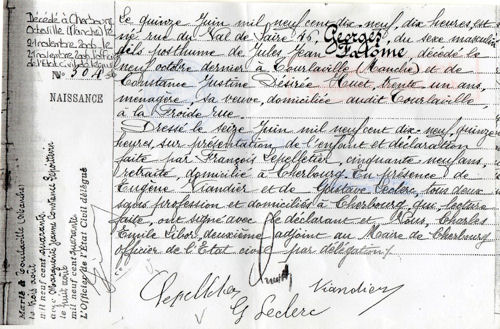 Décédé à Cherbourg
Octeville (Manche) le
12 novembre 2006
N° 508
NAISSANCE
Le quinze Juin mil neuf cent dix neuf, dix heures, est
né rue du Val de Saire 16, Georges du sexe masculin
fils posthume de Jules Jean Fontaine décédé le
neuf octobre dernier à Tourlaville (Manche) et de
Constance Justine Désirée Huet, trente un ans,
ménagère, sa veuve, domiciliée audit Tourlaville,
à la Froide rue.
Dressé le seize Juin mil neuf cent dix neuf, quinze
heures, sur présentation de l'enfant et déclaration
faite par François Lepelletier, cinquante neuf ans,
retraité, domicilié à Cherbourg. En présence de
Eugène Viandier et de Gustave Leclerc, tous deux
sans profession et domiciliés à Cherbourg qui, lecture
faite, ont signé avec le déclarant et Nous, Charles
Emile Libor deuxième adjoint au Maire de Cherbourg
officier de l'Etat civil par délégation.
Lepelletier Viandier
G Leclerc
Marié à Tourlaville (Manche)
le trois août
mil neuf cent quarante
avec
le huit août
mil neuf cent quarante
L'Officier de l'Etat Civil délégué